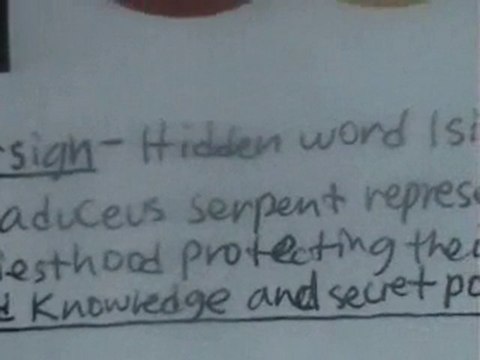 -sign - Hidden word Isi
aduceus serpent represe
iesthood protecting thei
d Knowledge and secret po